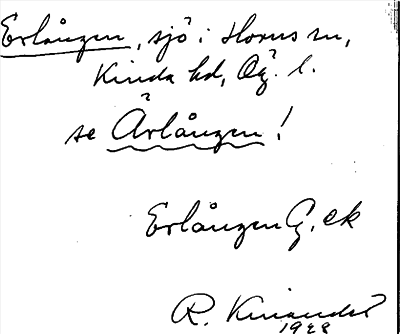 Erlången, sjö i Horns sn,
Kinda hd, Ög. l.
se Ärlången!
Erlången G. ek
R. Kinander
1928